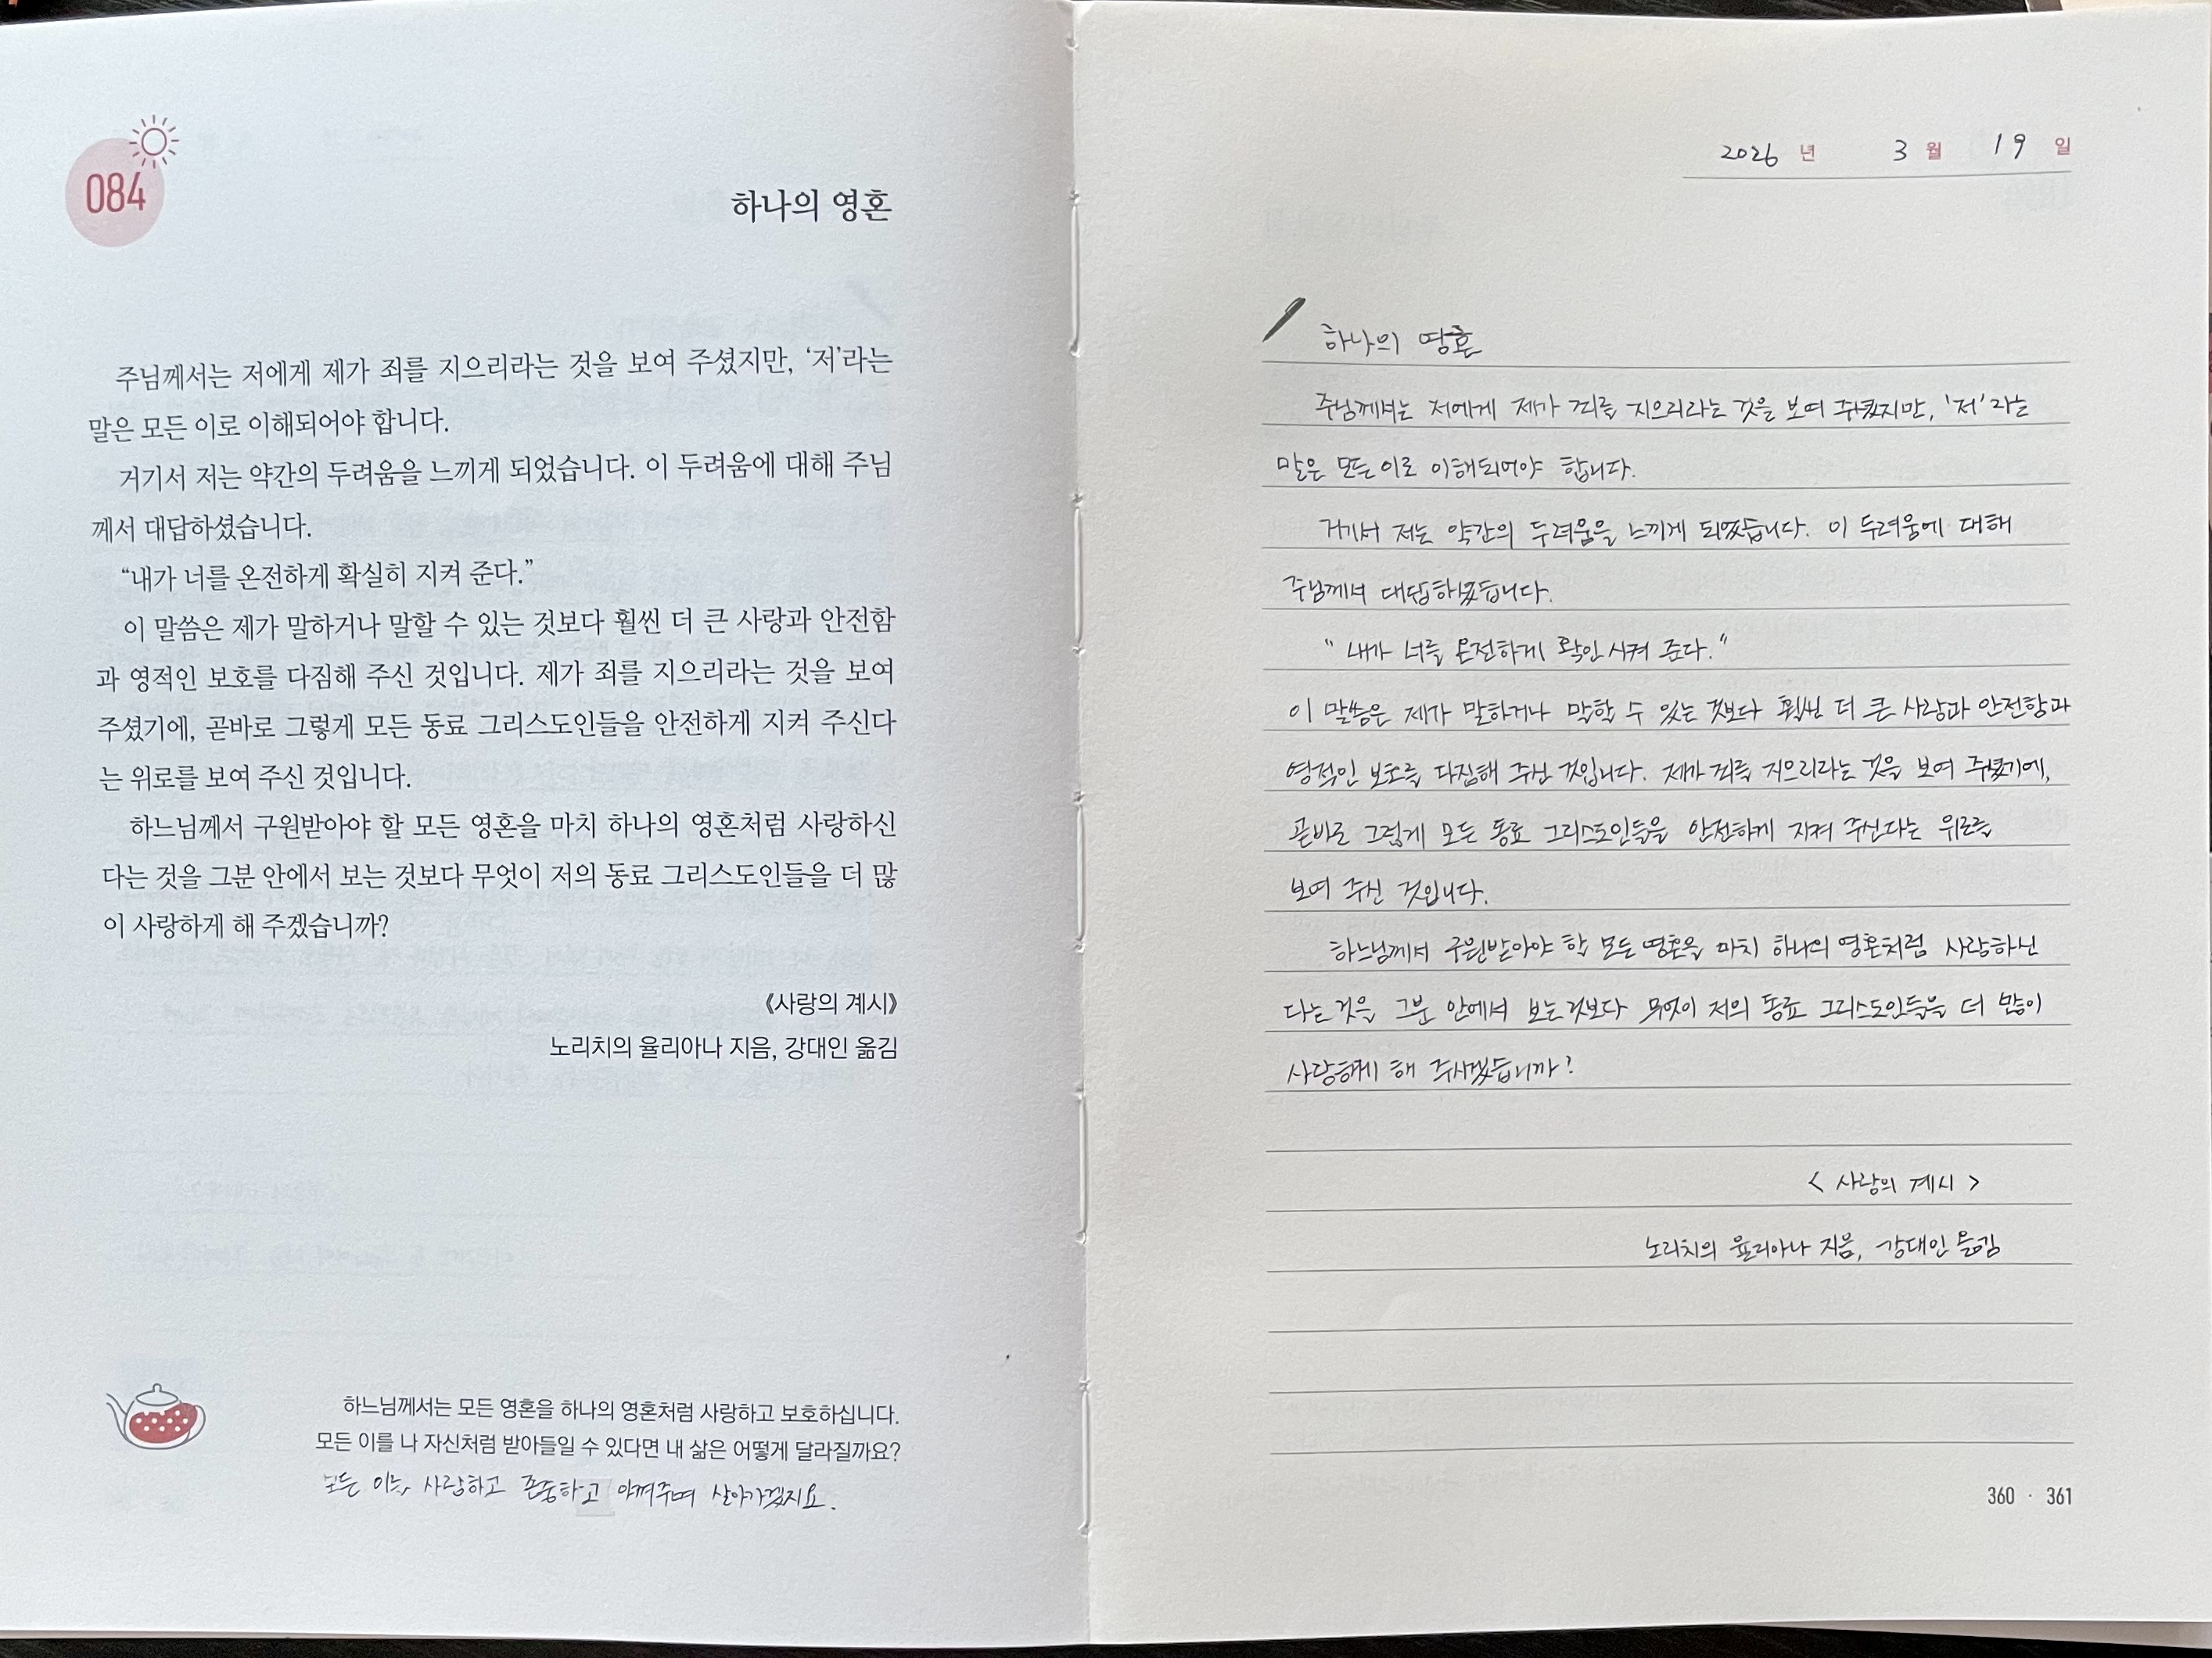 084
하나의 영혼
주님께서는 저에게 제가 죄를 지으리라는 것을 보여 주셨지만, ‘저’라는
말은 모든 이로 이해되어야 합니다.
거기서 저는 약간의 두려움을 느끼게 되었습니다. 이 두려움에 대해 주님
께서 대답하셨습니다.
“내가 너를 온전하게 확실히 지켜 준다.”
이 말씀은 제가 말하거나 말할 수 있는 것보다 훨씬 더 큰 사랑과 안전함
과 영적인 보호를 다짐해 주신 것입니다. 제가 죄를 지으리라는 것을 보여
주셨기에, 곧바로 그렇게 모든 동료 그리스도인들을 안전하게 지켜 주신다
는 위로를 보여 주신 것입니다.
하느님께서 구원받아야 할 모든 영혼을 마치 하나의 영혼처럼 사랑하신
다는 것을 그분 안에서 보는 것보다 무엇이 저의 동료 그리스도인들을 더 많
이 사랑하게 해 주겠습니까?
《사랑의 계시》
노리치의 율리아나 지음, 강대인 옮김
하느님께서는 모든 영혼을 하나의 영혼처럼 사랑하고 보호하십니다.
모든 이를 나 자신처럼 받아들일 수 있다면 내 삶은 어떻게 달라질까요?
모든 이를 사랑하고 존중하고 아껴주며 살아가겠지요.
2026 년 3 월 19 일
하나의 영혼
주님께서는 저에게 제가 죄를 지으리라는 것을 보여 주셨지만, '저'라는
말은 모든 이로 이해되어야 합니다.
거기서 저는 약간의 두려움을 느끼게 되었습니다. 이 두려움에 대해
주님께서 대답하셨습니다.
"내가 너를 온전하게 확인 시켜 준다."
이 말씀은 제가 말하거나 말할 수 있는 것보다 훨씬 더 큰 사랑과 안전함과
영적인 보호를 다짐해 주신 것입니다. 제가 죄를 지으리라는 것을 보여 주셨기에,
곧바로 그렇게 모든 동료 그리스도인들을 안전하게 지켜 주신다는 위로를
보여 주신 것입니다.
하느님께서 구원받아야 할 모든 영혼을 마치 하나의 영혼처럼 사랑하신
다는 것을 그분 안에서 보는 것보다 무엇이 저의 동료 그리스도인들을 더 많이
사랑하게 해 주시겠습니까?
< 사랑의 계시 >
노리치의 율리아나 지음, 강대인 옮김
360 · 361